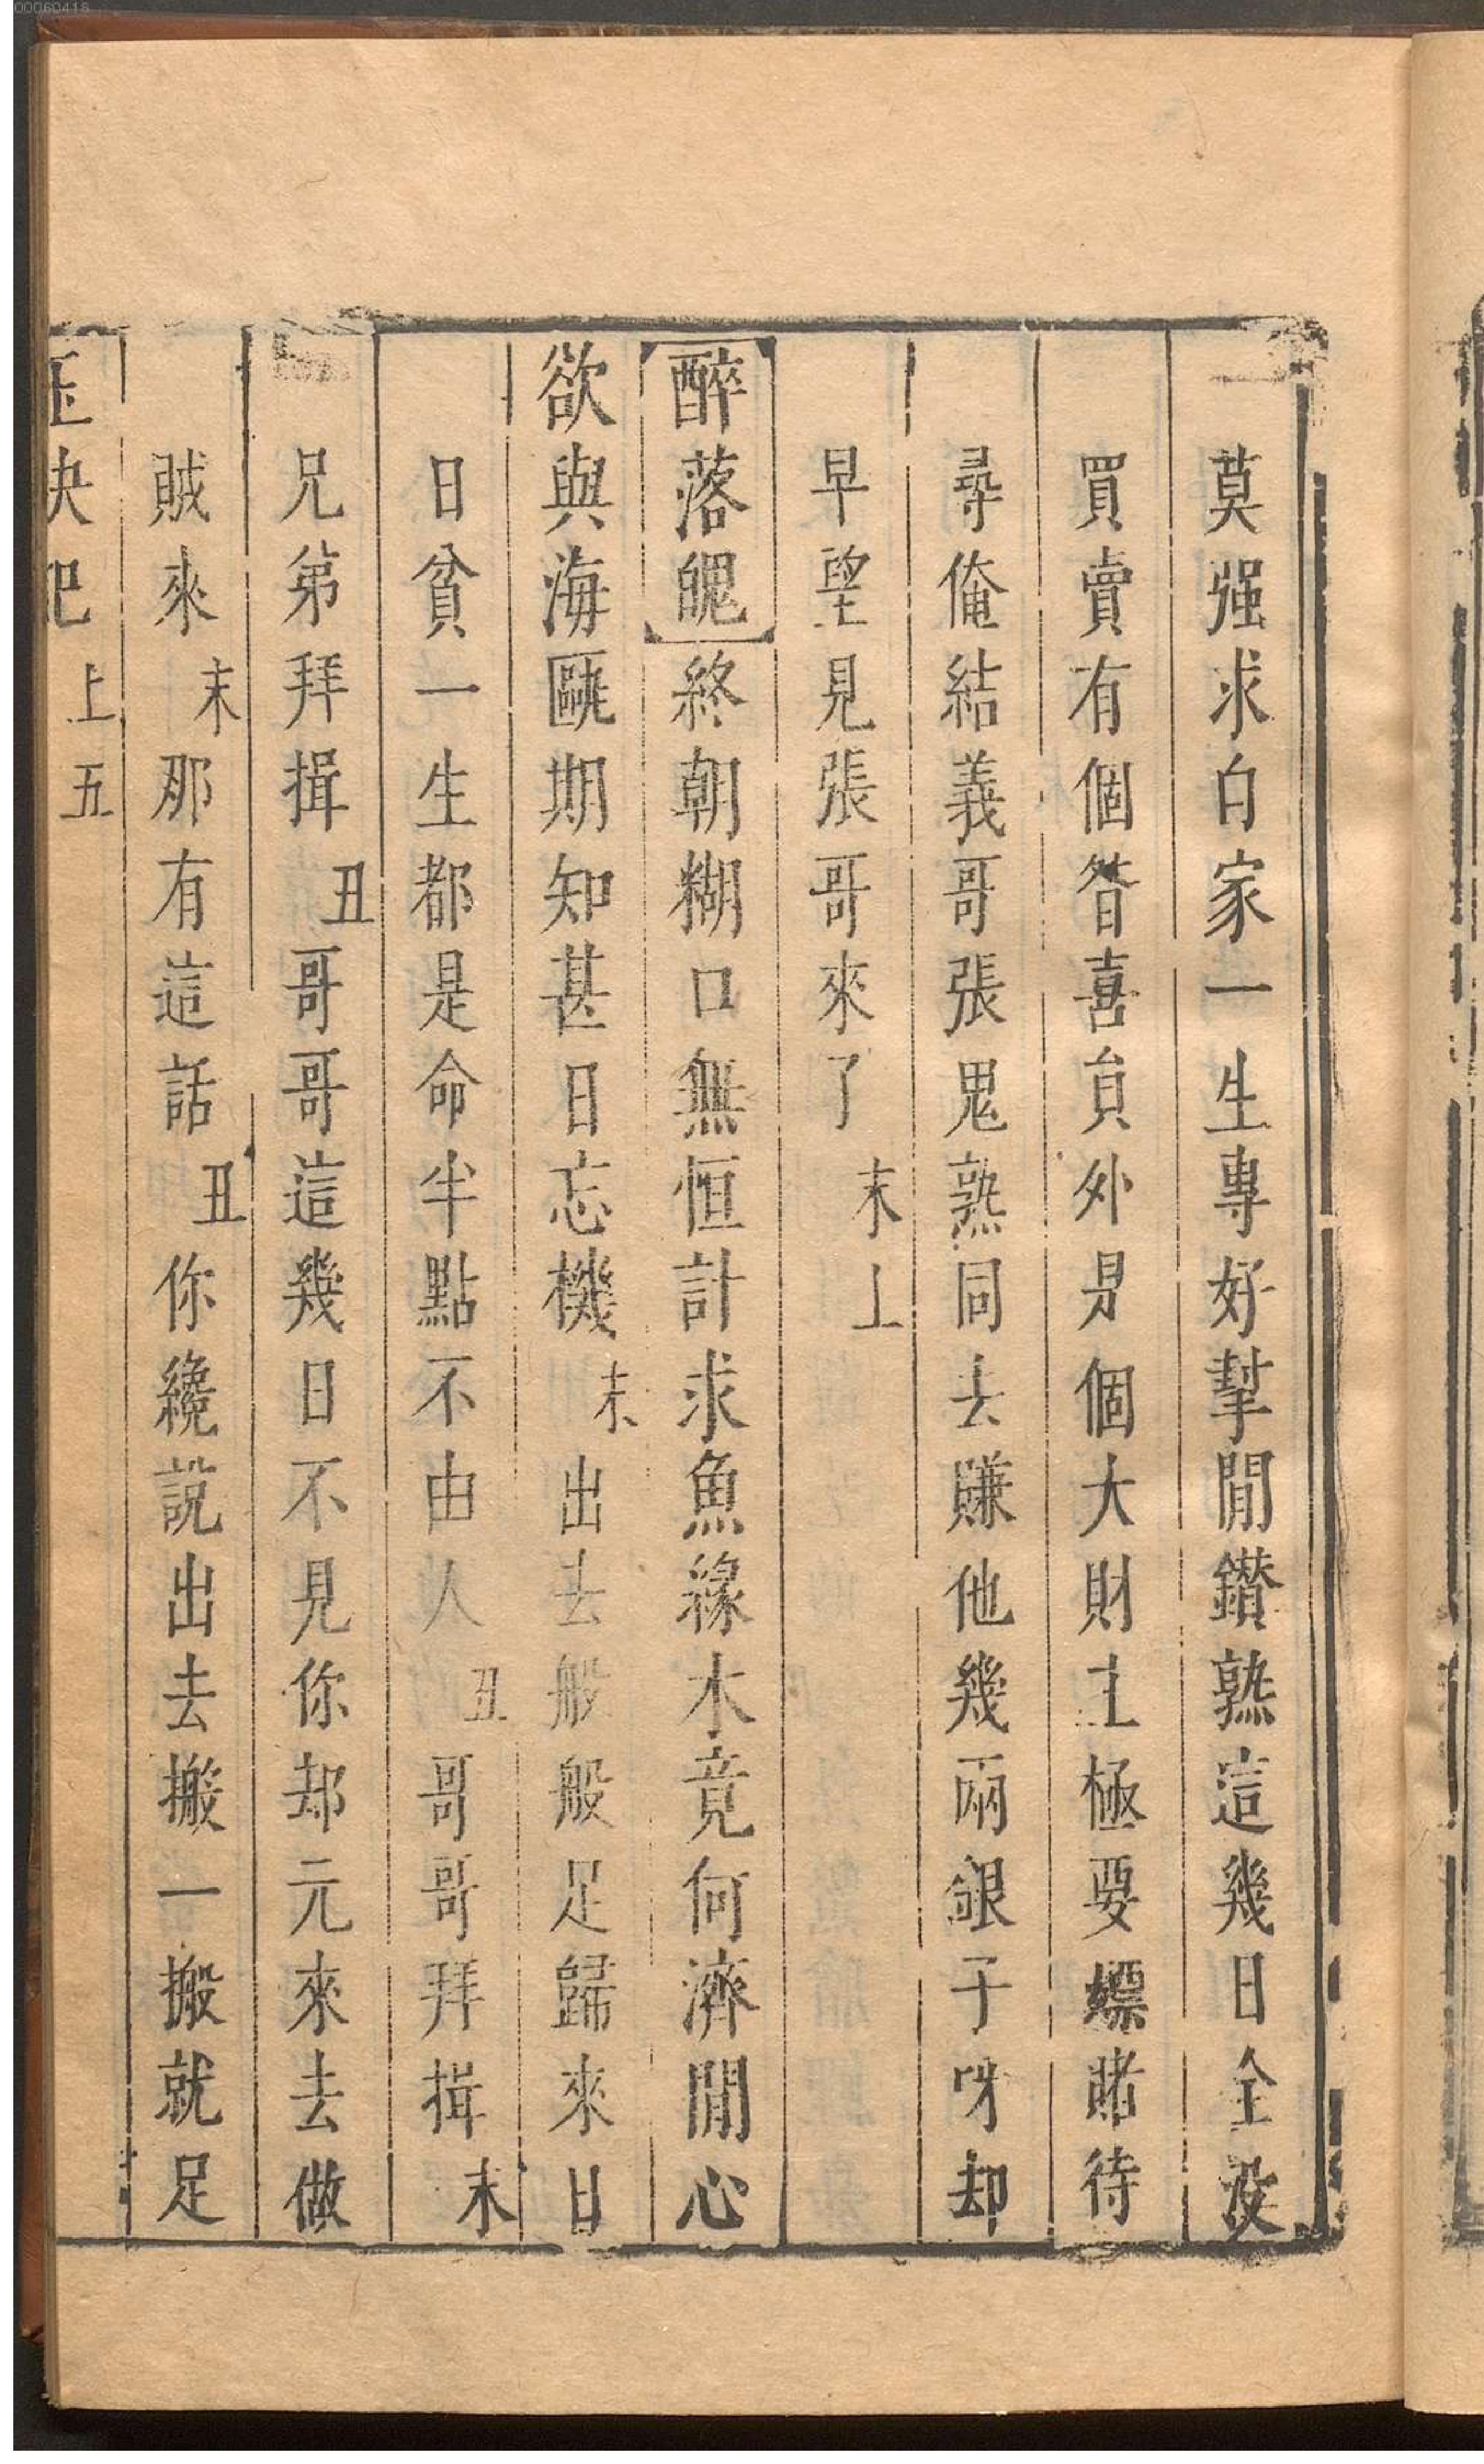 莫强求自家一生專好挈閒鑚熟這幾日全没
買賣有個昝喜負外是個大財主極要嫖賭待
尋俺結義哥張鬼熟同去賺他幾兩銀子呀却
早望見張哥來了末上
醉落魄終朝糊口無恒計求魚緣木竟何濟閒心
欲與海鷗期知甚日忘機末出去般般足歸來日
日貧一生都是命半點不由人丑哥哥拜揖末
兄弟拜揖丑哥哥這幾日不見你却元來去做
賊來末那有這話丑你纔說出去搬一搬就足
玉玦記上五
00060418